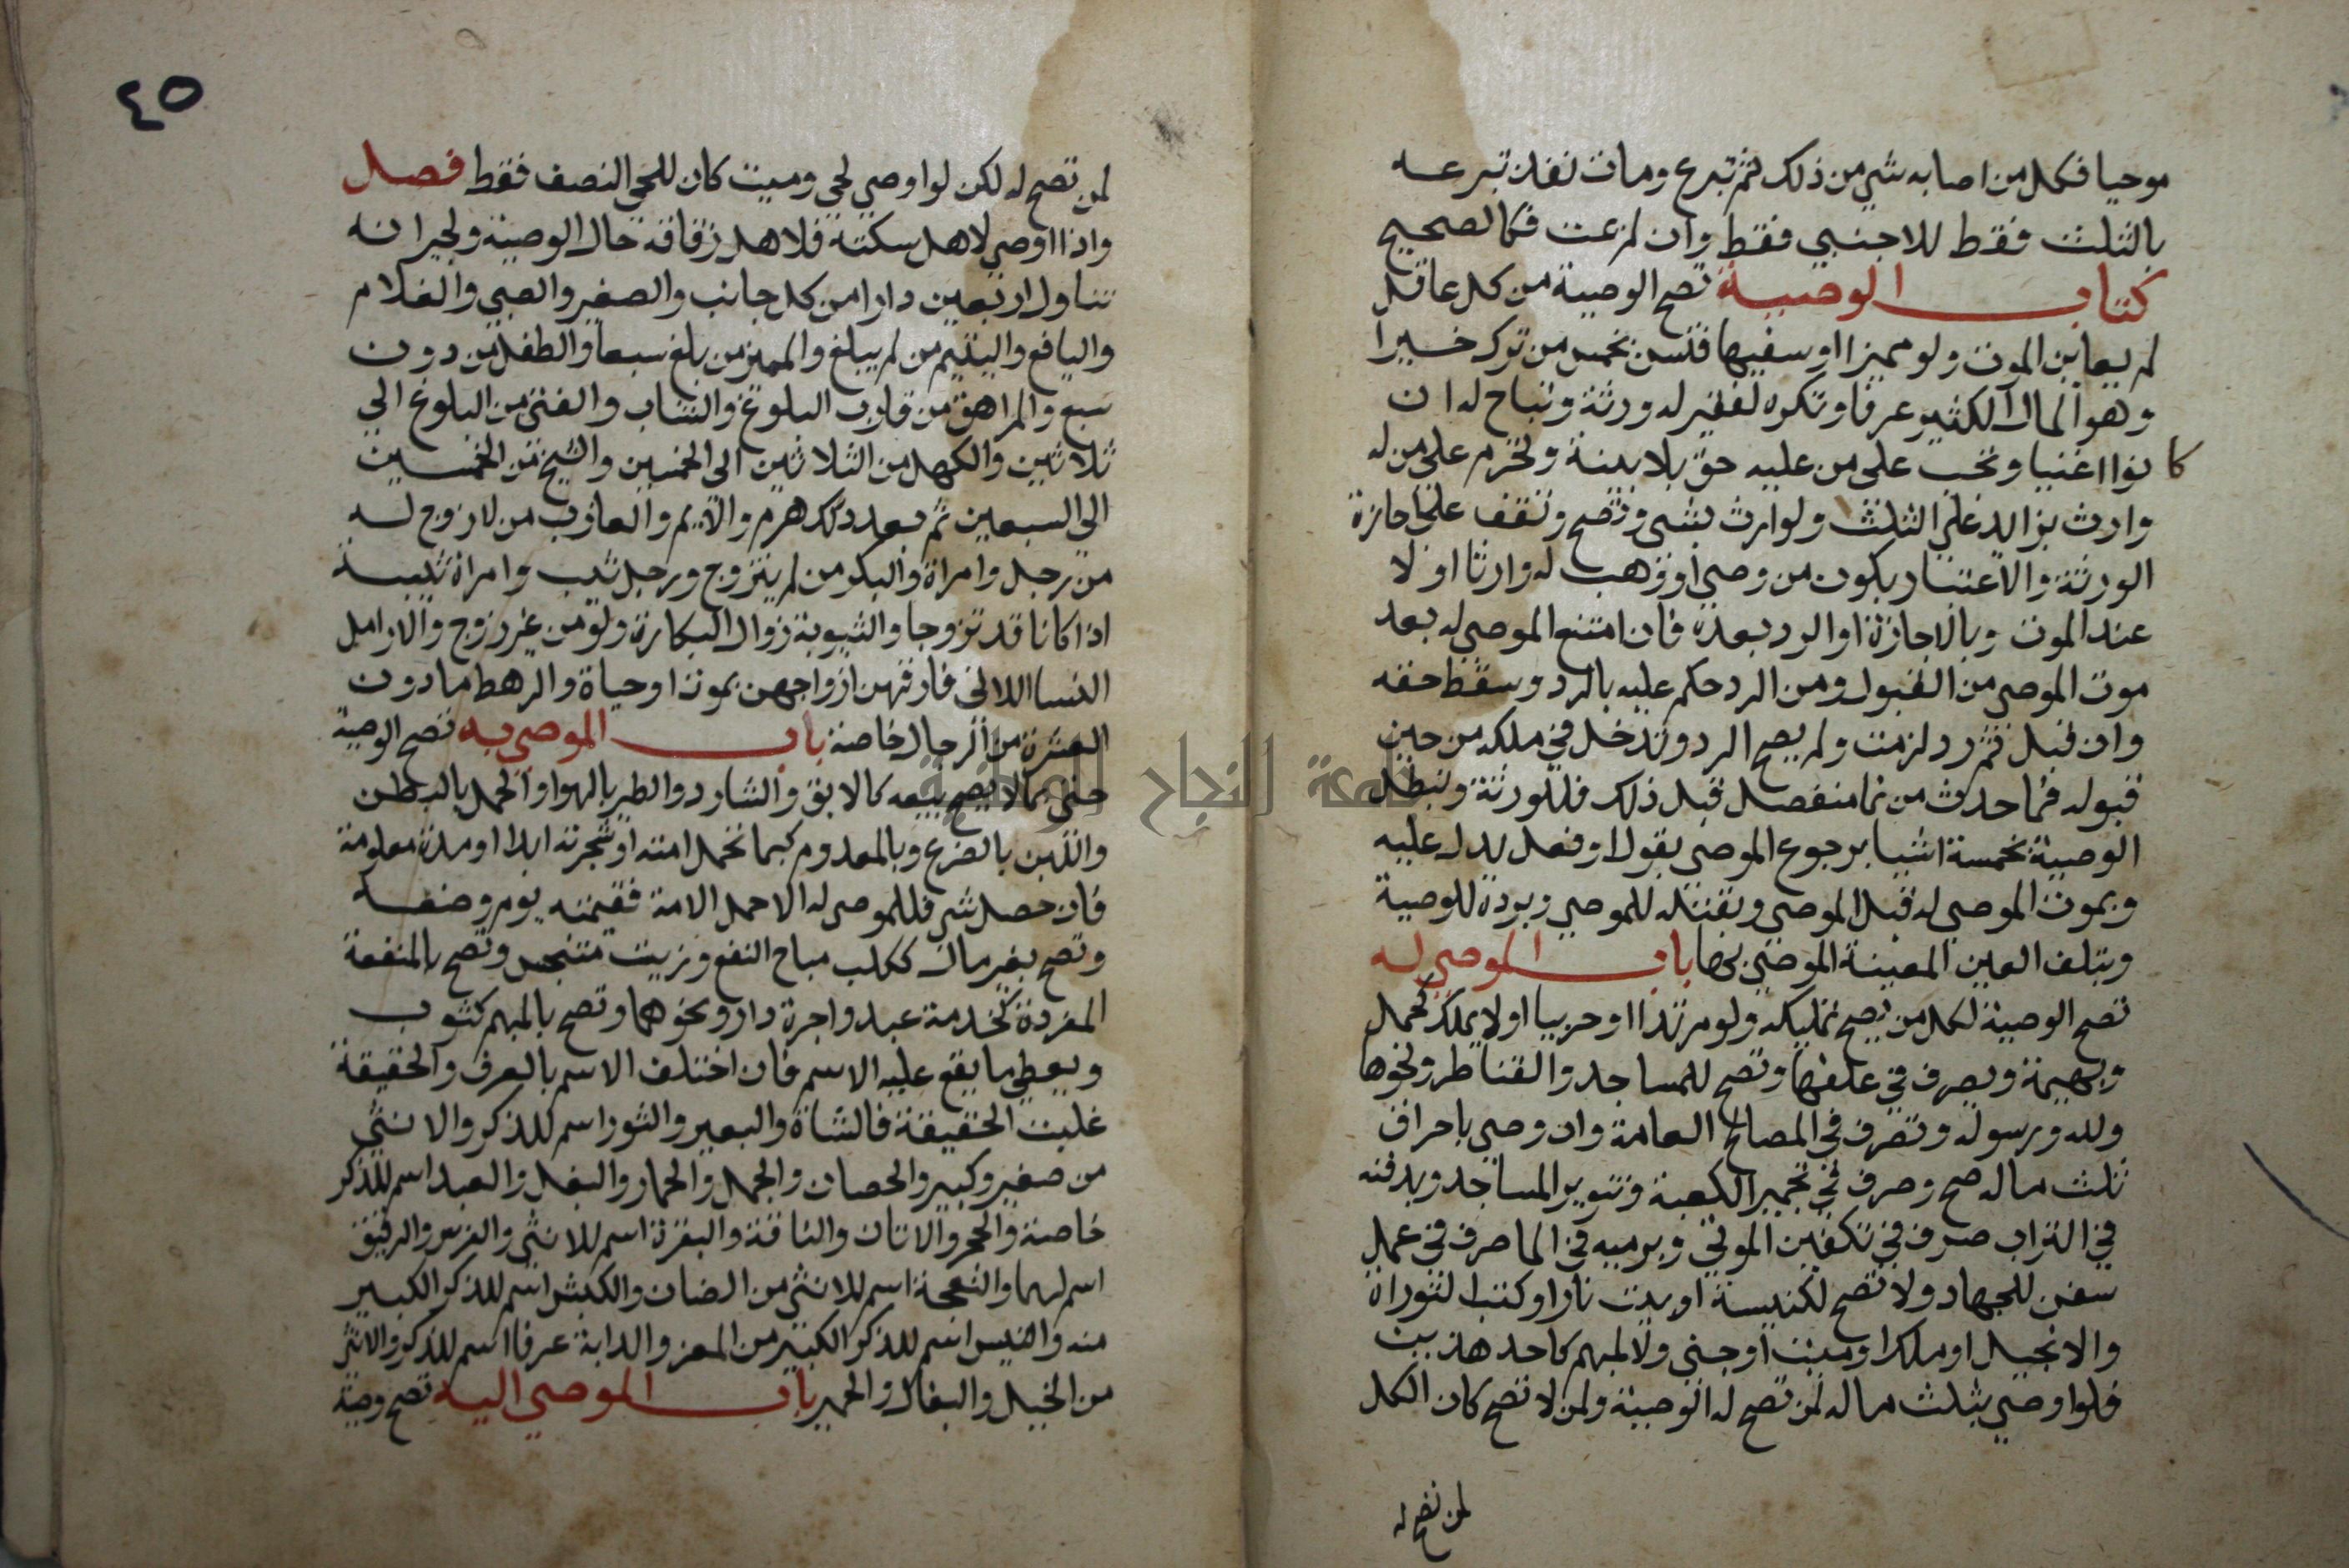 موحيا فكل من اصابه شي من ذلك ثم تبرع ومات نفذ تبرعه
بالثلث فقط للاجنبي فقط وان لم يمت فكالصحيح
كتاب الوصية تصح الوصية من كل عاقل
لم يعاين الموت ولو مميزا او سفيها فتسن بخمس من ترك خيرا
وهو المال الكثير عرفا وتكره لفقير له ورثة وتباح له ان
كا نوا اغنيا وتجب على من عليه حق بلا بينة وتحرم على من له
وارث بزايد على الثلث ولوارث بشي وتصح وتقف على اجازة
الورثة والاعتبار بكون من وصي او وهب له وارثا او لا
عند الموت وبالاجازة او الرد بعده فان امتنع الموصى له بعد
موت الموصي من القبول ومن الرد حكم عليه بالرد وسقط حقه
وان قبل ثم رد لزمت ولم يصح الرد وتدخل في ملكه من حين
قبوله فما حدث من نما منفصل قبل ذلك فللورثة وتبطل
الوصية بخمسة اشيا برجوع الموصي بقول او فعل يدل عليه
وبموت الموصى له قبل الموصي وبقتله للموصي وبرده للوصية
وبتلف العين المعينة الموصي بها باب الموصي له
تصح الوصية لكل من يصح تمليكه ولو مرتدا او حربيا او لا يملك كحمل
وبهيمة ويصرف في علفها وتصح للمساجد والقناطر ونحوها
ولله ورسوله وتصرف في المصالح العامة وان وصي باحراق
ثلث ماله صح وصرف في تجمير الكعبة وتنوير المساجد وبدفنه
في التراب صرف في تكفين الموتي وبرميه في الما صرف في عمل
سفن للجهاد ولا تصح لكنيسة او بيت نار او كتب التوراة
والانجيل او ملك او ميت او جني ولا لمبهم كاحد هذين
فلو اوصي بثلث ماله لمن تصح له الوصية ولمن لا تصح كان الكل
لمن تصح له
٤٥
لمن تصح له لكن لو اوصي لحي وميت كان للحي النصف فقط فصل
واذا اوصي لاهل سكته فلاهل زقاقه حال الوصية ولجيرانه
تناول اربعين دارا من كل جانب والصغير والصبي والغلام
واليافع واليتيم من لم يبلغ والمميز من بلغ سبعا والطفل من دون
سبع والمراهق من قارب البلوغ والشاب والفتى من البلوغ الى
ثلاثين والكهل من الثلاثين الى الخمسين والشيخ من الخمسين
الى السبعين ثم بعد ذلك هرم والايم والعازب من لا زوج له
من رجل وامراة والبكر من لم يتزوج ورجل ثيب وامراة ثيبة
اذا كانا قد تزوجا والثيوبة زوال البكارة ولو من غير زوج والارامل
النسا اللاتي فارقهن ازواجهن بموت او حياة والرهط ما دون
العشرة من الرجال خاصة باب الموصى به تصح الوصية
حتى بما لا يصح بيعه كالابق والشارد والطير بالهوا والحمل بالبطن
واللبن بالضرع وبالمعدوم كبما تحمل امته او شجرته ابدا او مدة معلومة
فان حصل شي فللموصى له الا حمل الامة فقيمته يوم وضعه
وتصح بغير مال ككلب مباح النفع وزيت متنجس وتصح بالمنفعة
المفردة كخدمة عبد واجرة دار ونحوهما وتصح بالمبهم كثوب
ويعطي ما يقع عليه الاسم فان اختلف الاسم بالعرف والحقيقة
غلبت الحقيقة فالشاة والبعير والثور اسم للذكر والانثي
من صغير وكبير والحصان والجمل والحمار والبغل والعبد اسم للذكر
خاصة والحجر والاتان والناقة والبقرة اسم للانثى والفرس والرقيق
اسم لهما والنعجة اسم للانثى من الضان والكبش اسم للذكر الكبير
منه والتيس اسم للذكر الكبير من المعز والدابة عرفا اسم للذكر والانثى
من الخيل والبغال والحمير باب الموصي اليه تصح وصية
النجاح الوطنية